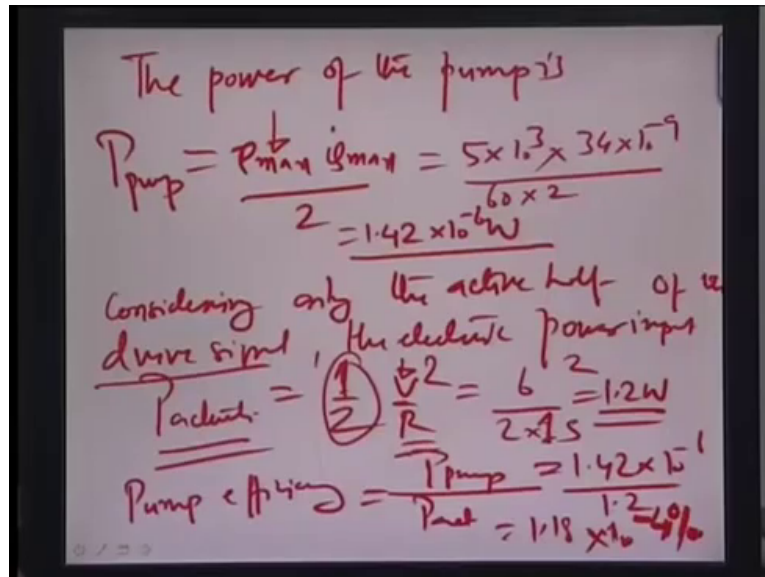 The power of the pump is
P_pump = P_max φ_max / 2 = 5×10^3 × 34×10^-9 / 60×2
= 1.42×10^-6 W
Considering only the active half of the
drive signal, the electric power input
P_actuator = 1/2 V^2/R = 6^2 / 2×15 = 1.2W
Pump efficiency = P_pump / P_act = 1.42×10^-6 / 1.2
= 1.18 ×10^-4 %